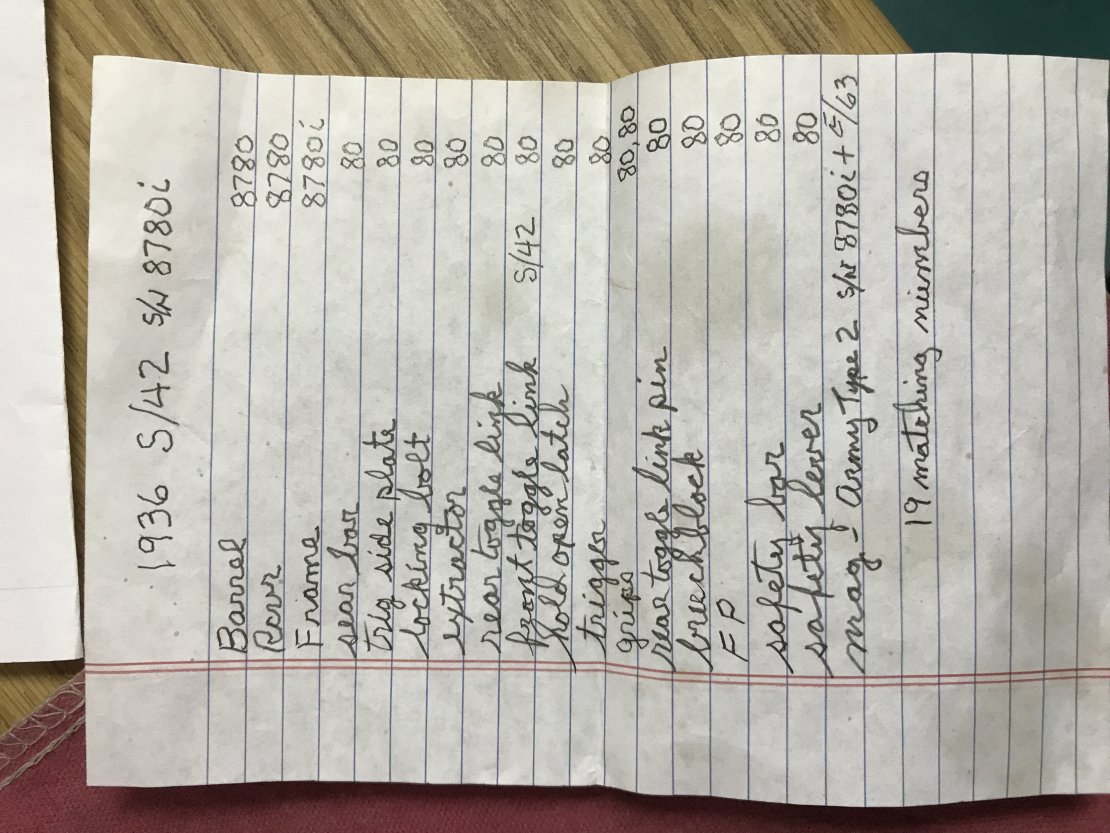 1936 S/42 S/N 8780i
Barrel 8780
Recvr 8780
Frame 8780i
sear bar 80
trig side plate 80
locking bolt 80
extractor 80
rear toggle link 80
front toggle link S/42 80
hold open latch 80
trigger 80
grips 80, 80
rear toggle link pin 80
breechblock 80
FP 80
safety bar 80
safety lever 80
mag - army Type 2 S/N 8780i + E/63
19 matching numbers